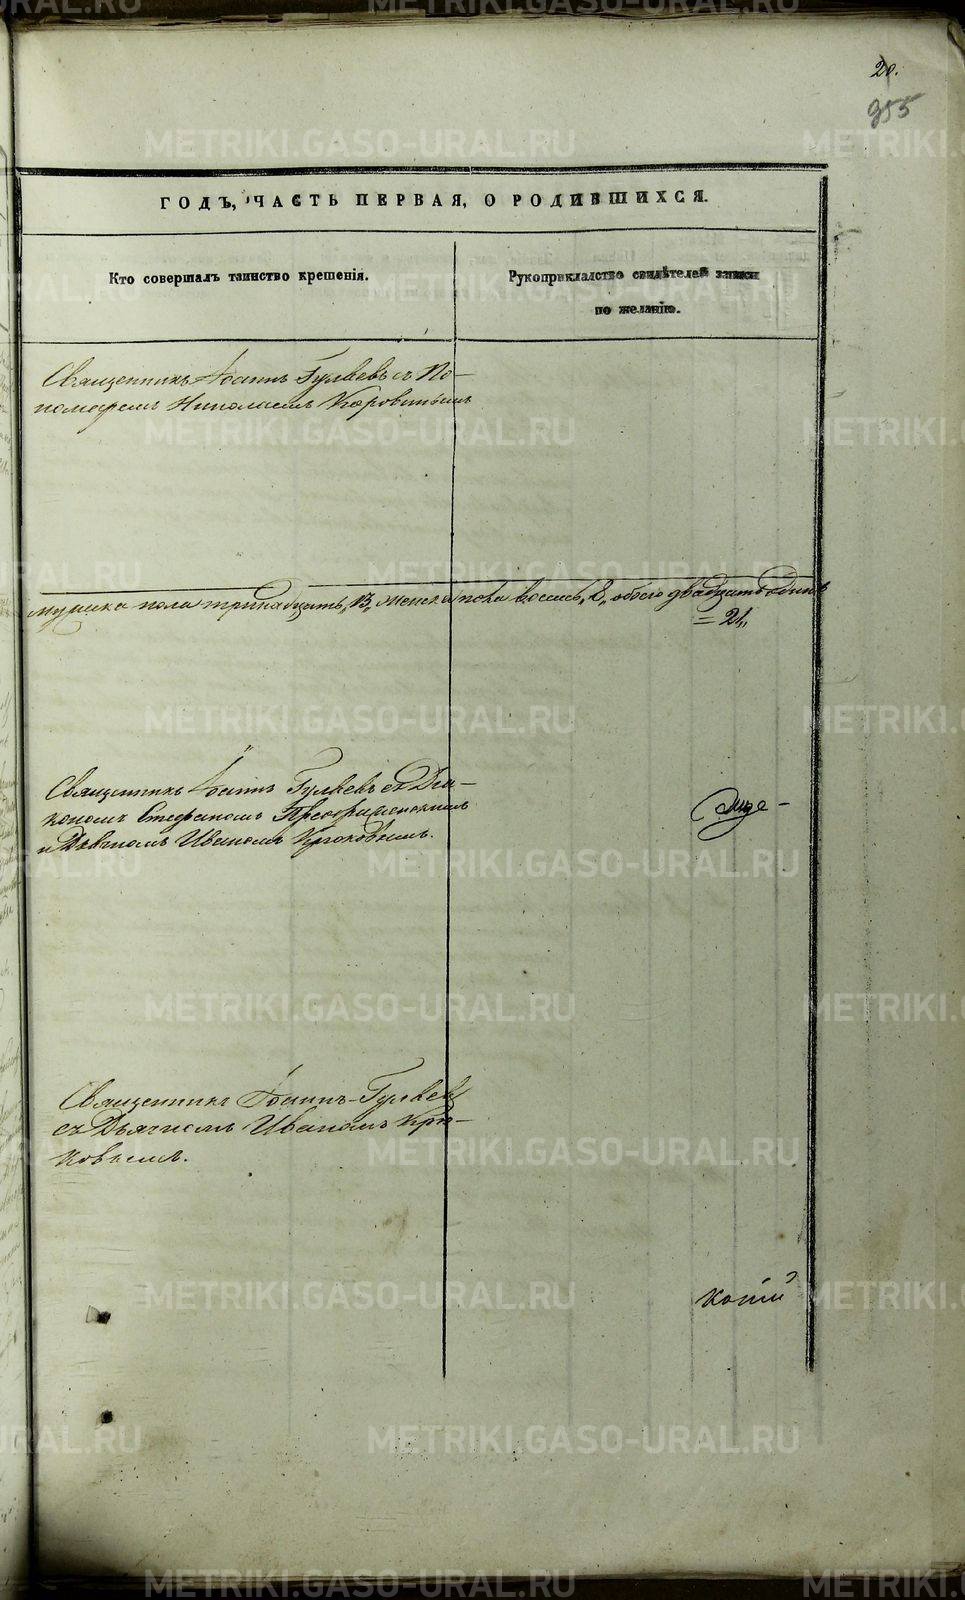 20.
955
ГОДЪ, ЧАСТЬ ПЕРВАЯ, О РОДИВШИХСЯ.
Кто совершалъ таинство крещенія.
Рукоприкладство свидѣтелей записи
по желанію.
Священникъ Іоаннъ Гуляевъ съ По-
номаремъ Николаемъ Коровинымъ
мужеска пола тринадцать „13„ женска пола восемь „8„ обоего двадцать одинъ
= 21„
Священникъ Іоаннъ Гуляевъ съ Діа-
кономъ Стефаномъ Преображенскимъ
и Дьячкомъ Иваномъ Крюковымъ.
Священникъ Іоаннъ Гуляевъ
съ Дьячкомъ Иваномъ Крю-
ковымъ.
копій
METRIKI.GASO-URAL.RU